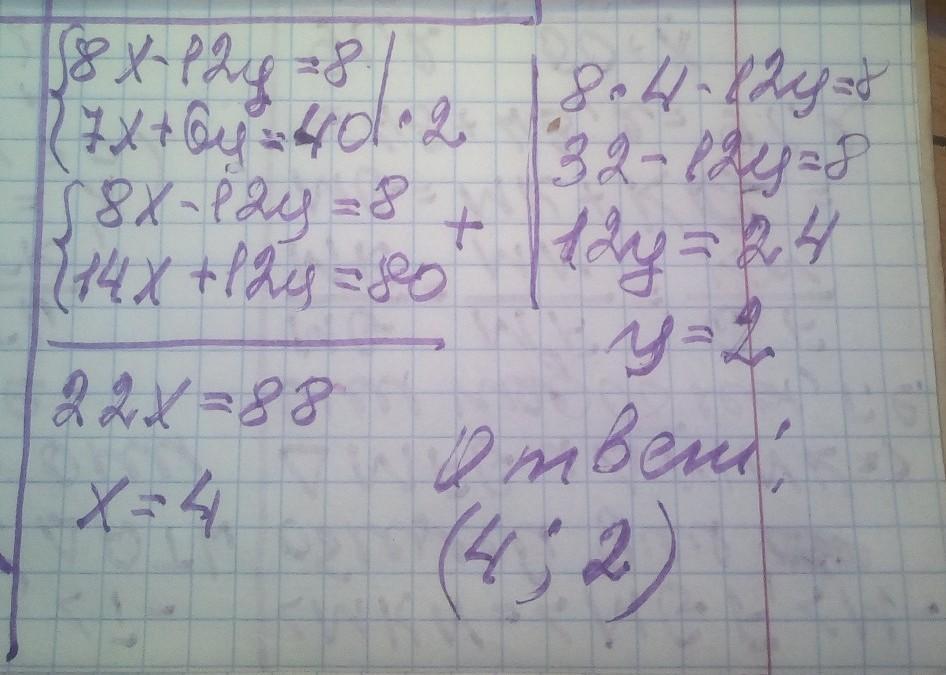 8x-12y=8
7x+6y=40 |·2
8x-12y=8
+
14x+12y=80
22x=88
x=4
8·4-12y=8
32-12y=8
12y=24
y=2
Ответ:
(4; 2)